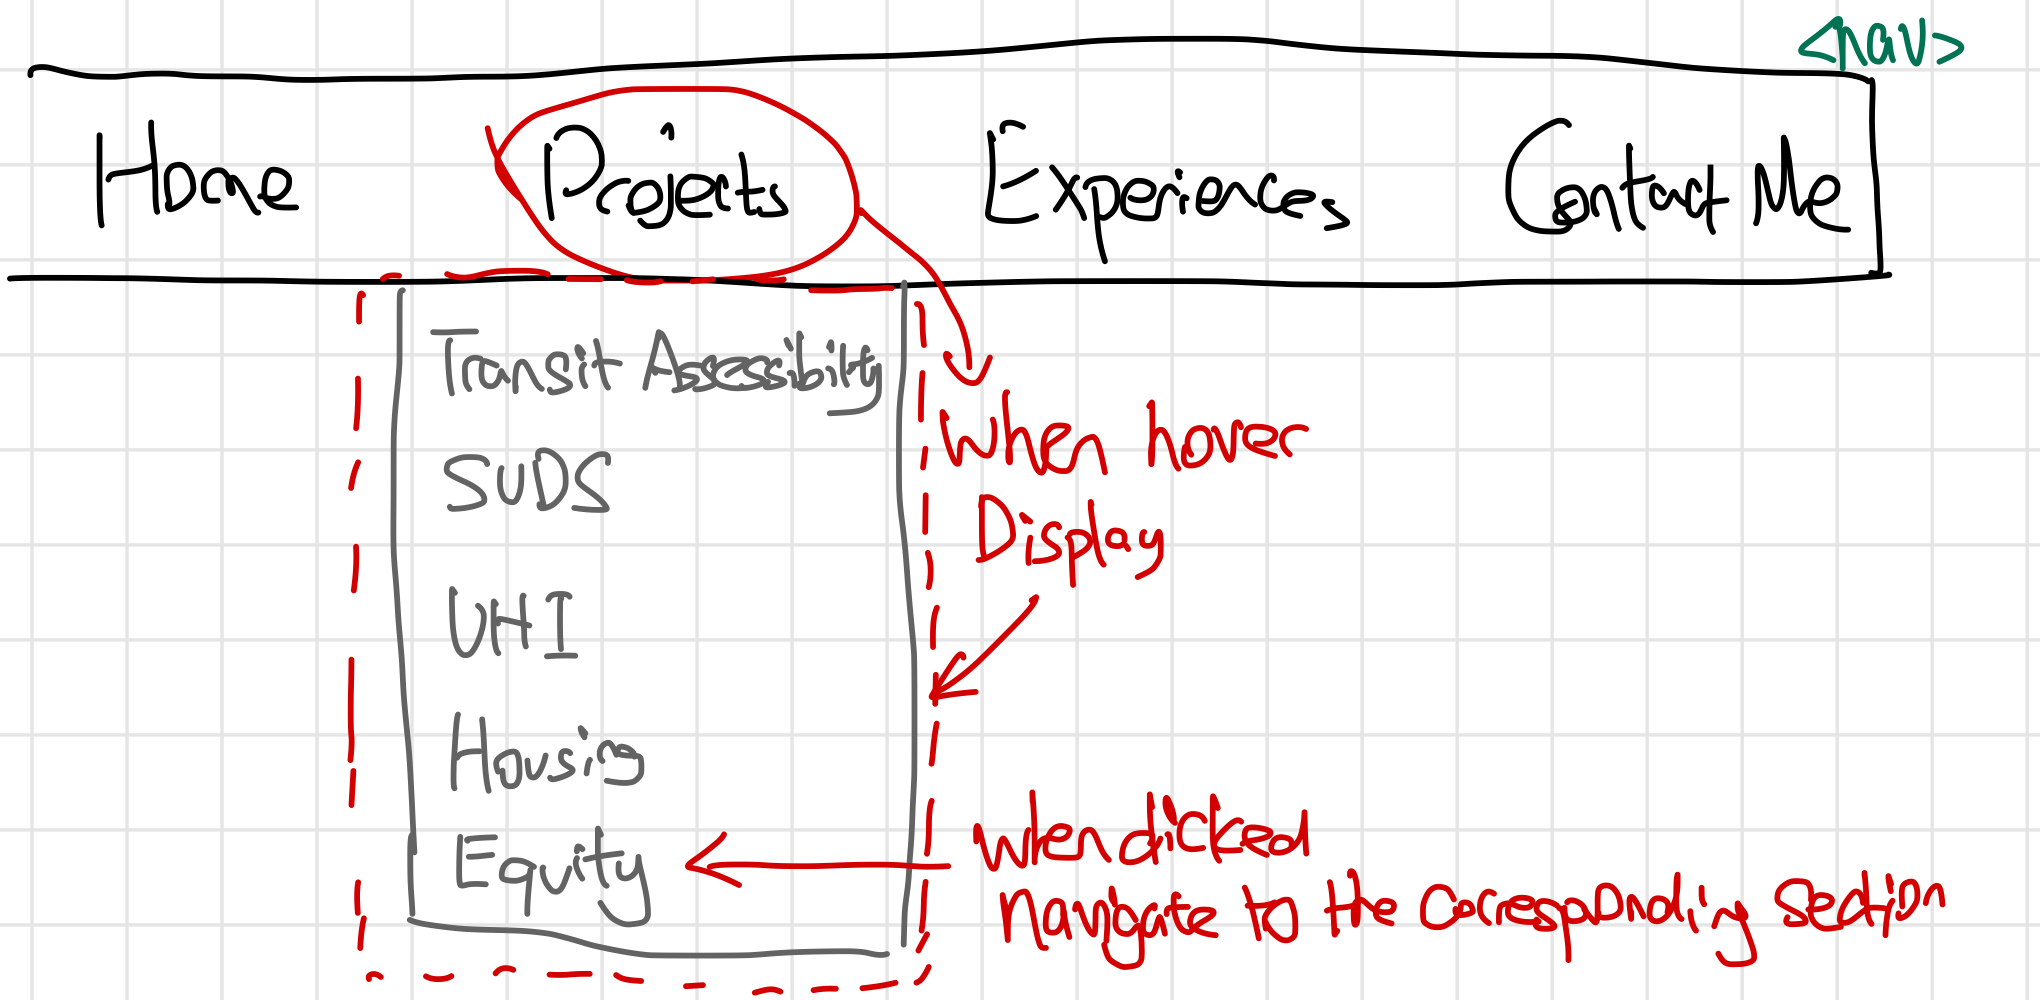 <nav>
Home Projects Experiences Contact Me
Transit Assessibilty
SUDS
UHI
Housig
Equity
When hover
Display
when clicked
navigate to the corespondig section